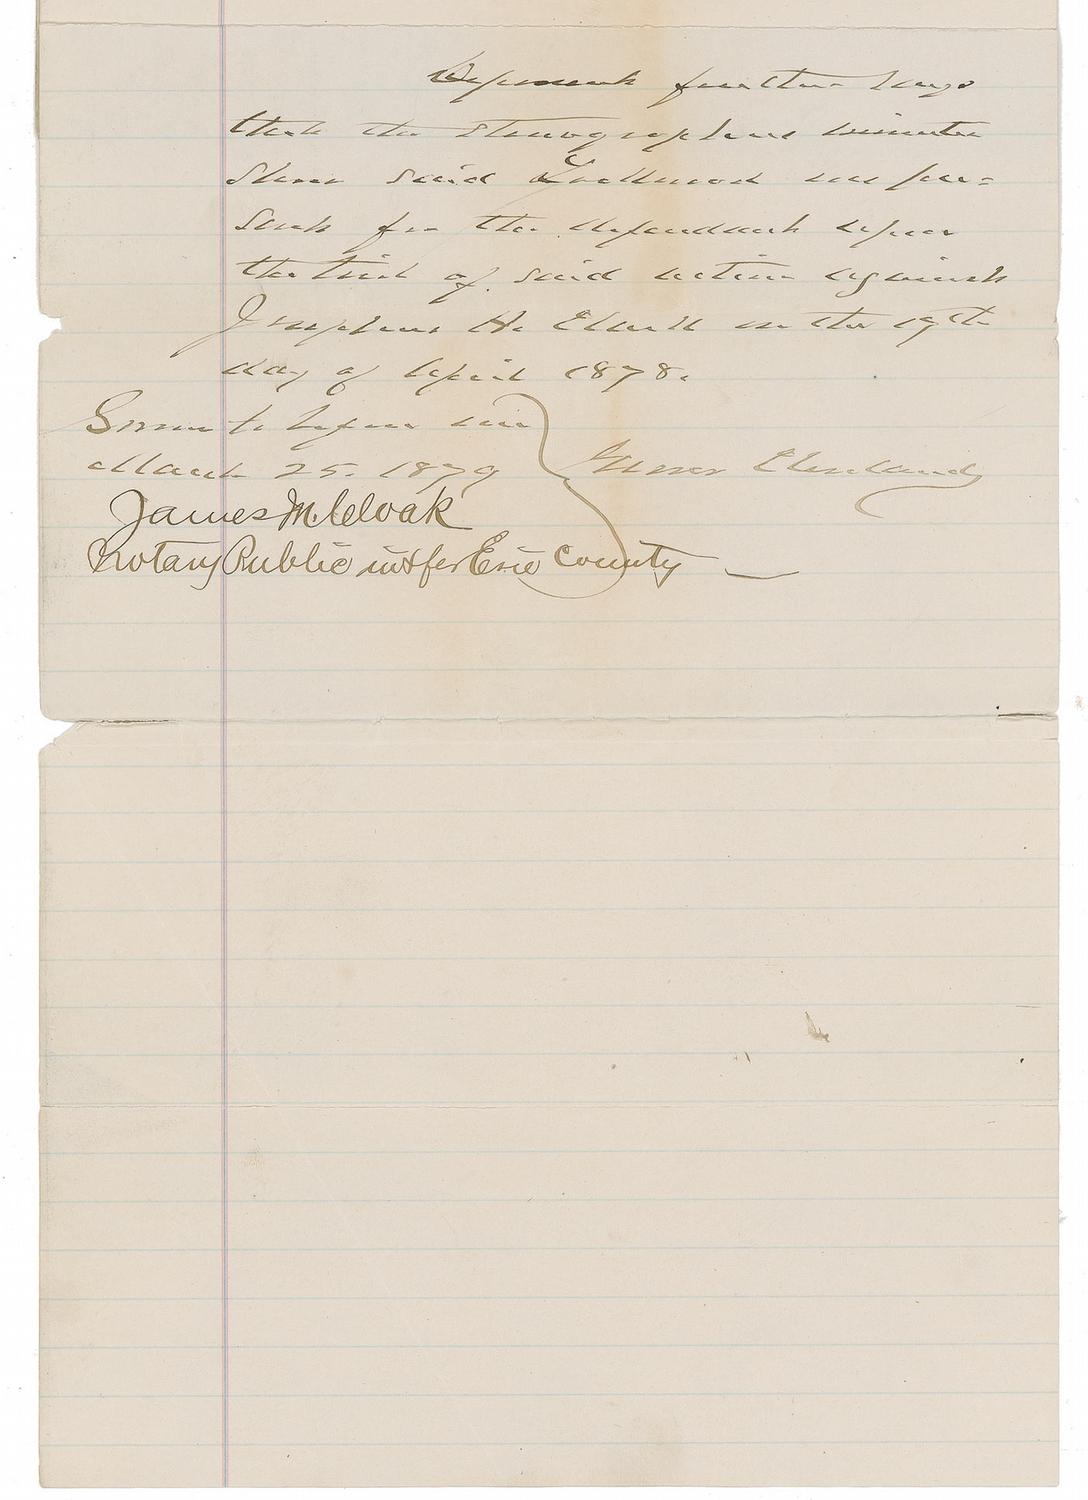 Deponent further says
that the stenographers minutes
show said Trollmod was pre=
sent for the defendant upon
the trial of said action against
Josephus H. on the 19th
day of April 1878.
Sworn to before me
March 25. 1879
James M. Cloak
Notary Public in & for Erie County